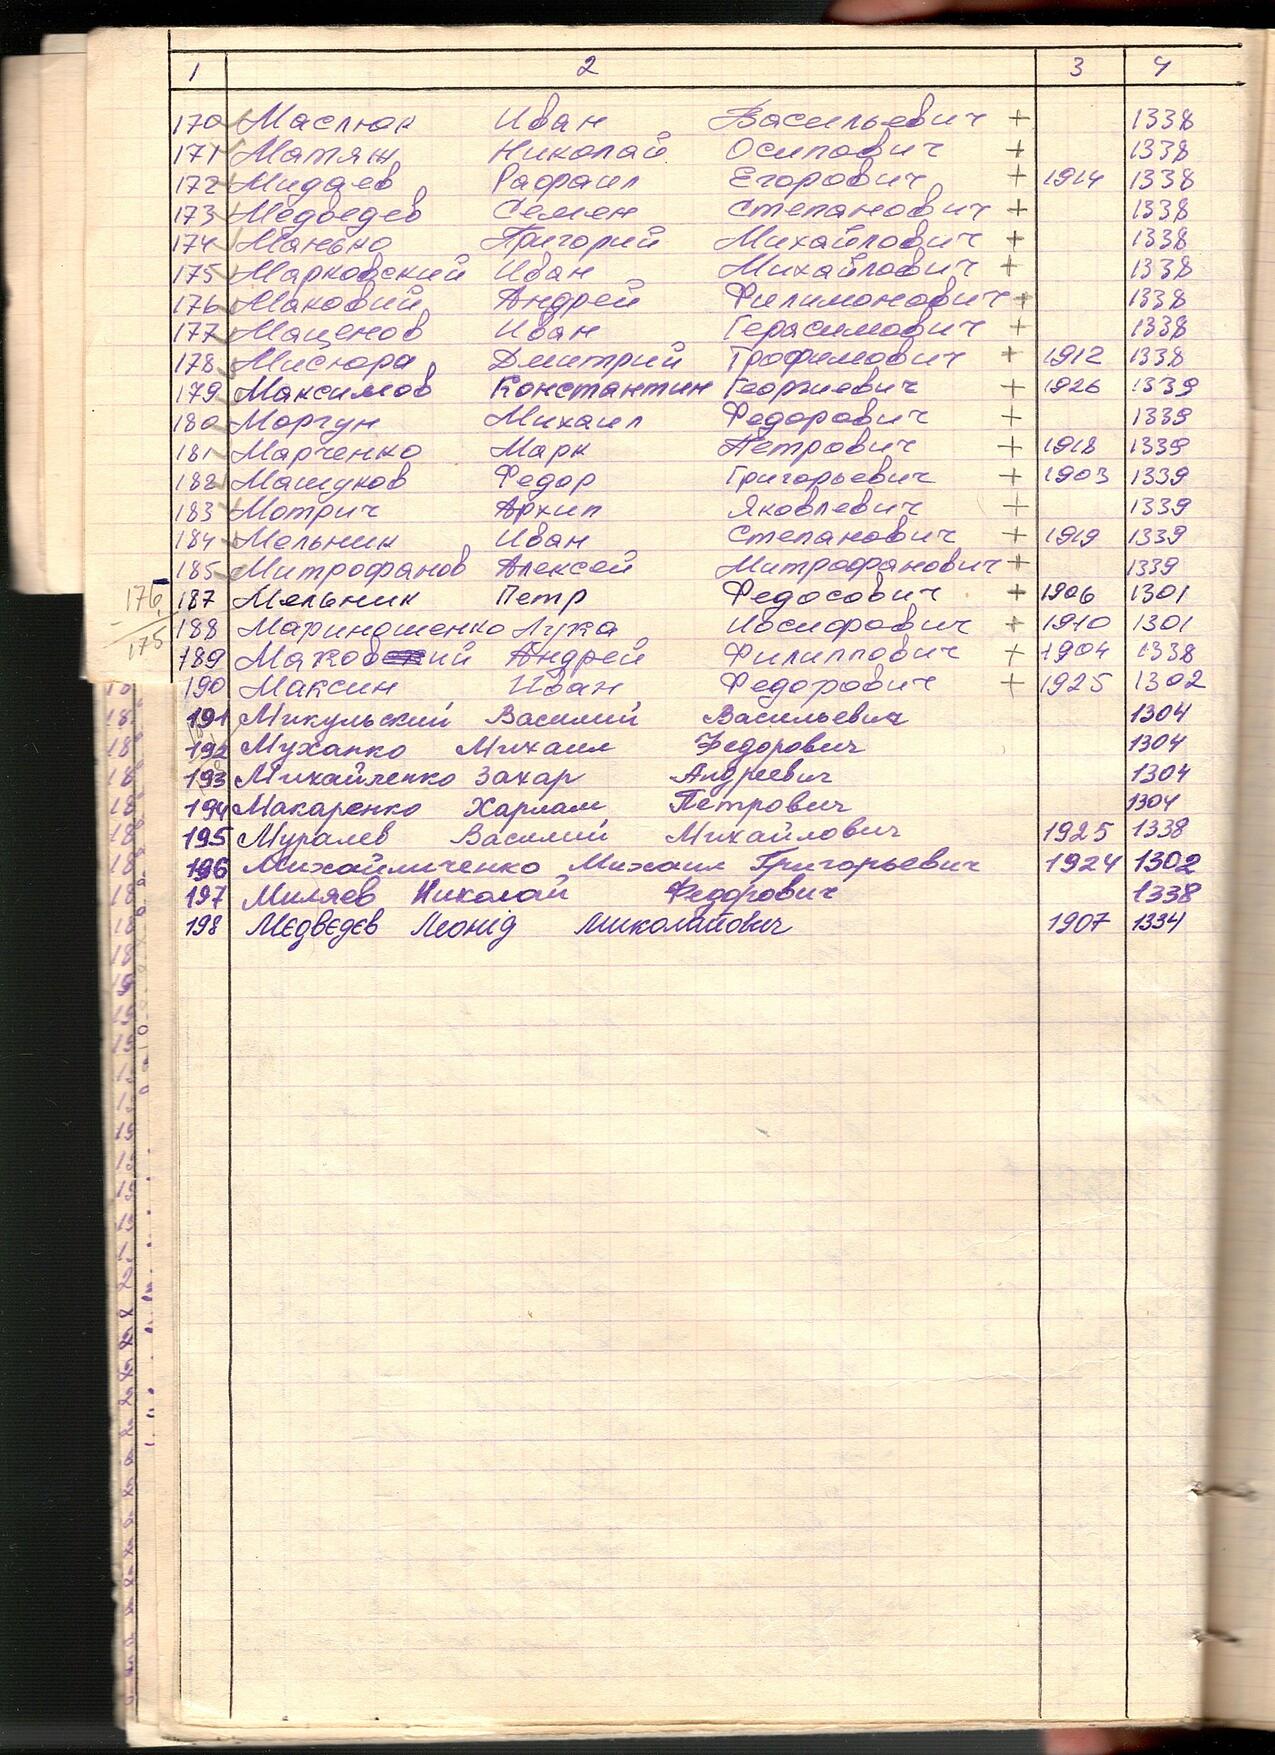 1 2 3 4
170 Маслюк Иван Васильевич + 1338
171 Матяш Николай Осипович + 1338
172 Мидаев Рафаил Егорович + 1914 1338
173 Медведев Семен Степанович + 1338
174 Манько Григорий Михайлович + 1338
175 Марковский Иван Михайлович + 1338
176 Маковий Андрей Филимонович + 1338
177 Маценов Иван Герасимович + 1338
178 Мисюра Дмитрий Трофимович + 1912 1338
179 Максимов Константин Георгиевич + 1926 1339
180 Моргун Михаил Федорович + 1339
181 Марченко Марк Петрович + 1918 1339
182 Машуков Федор Григорьевич + 1903 1339
183 Мотрич Архип Яковлевич + 1339
184 Мельник Иван Степанович + 1919 1339
185 Митрофанов Алексей Митрофанович + 1339
176
187 Мельник Петр Федосович + 1906 1301
188 Мариношенко Лука Иосифович + 1910 1301
175
189 Маковий Андрей Филиппович + 1904 1338
190 Максин Иван Федорович + 1925 1302
191 Микульский Василий Васильевич 1304
192 Муханко Михаил Федорович 1304
193 Михайленко Захар Андреевич 1304
194 Макаренко Харлам Петрович 1304
195 Муралев Василий Михайлович 1925 1338
196 Михайличенко Михаил Григорьевич 1924 1302
197 Миляев Николай Федорович 1338
198 Мєдвєдєв Леонід Миколайович 1907 1334